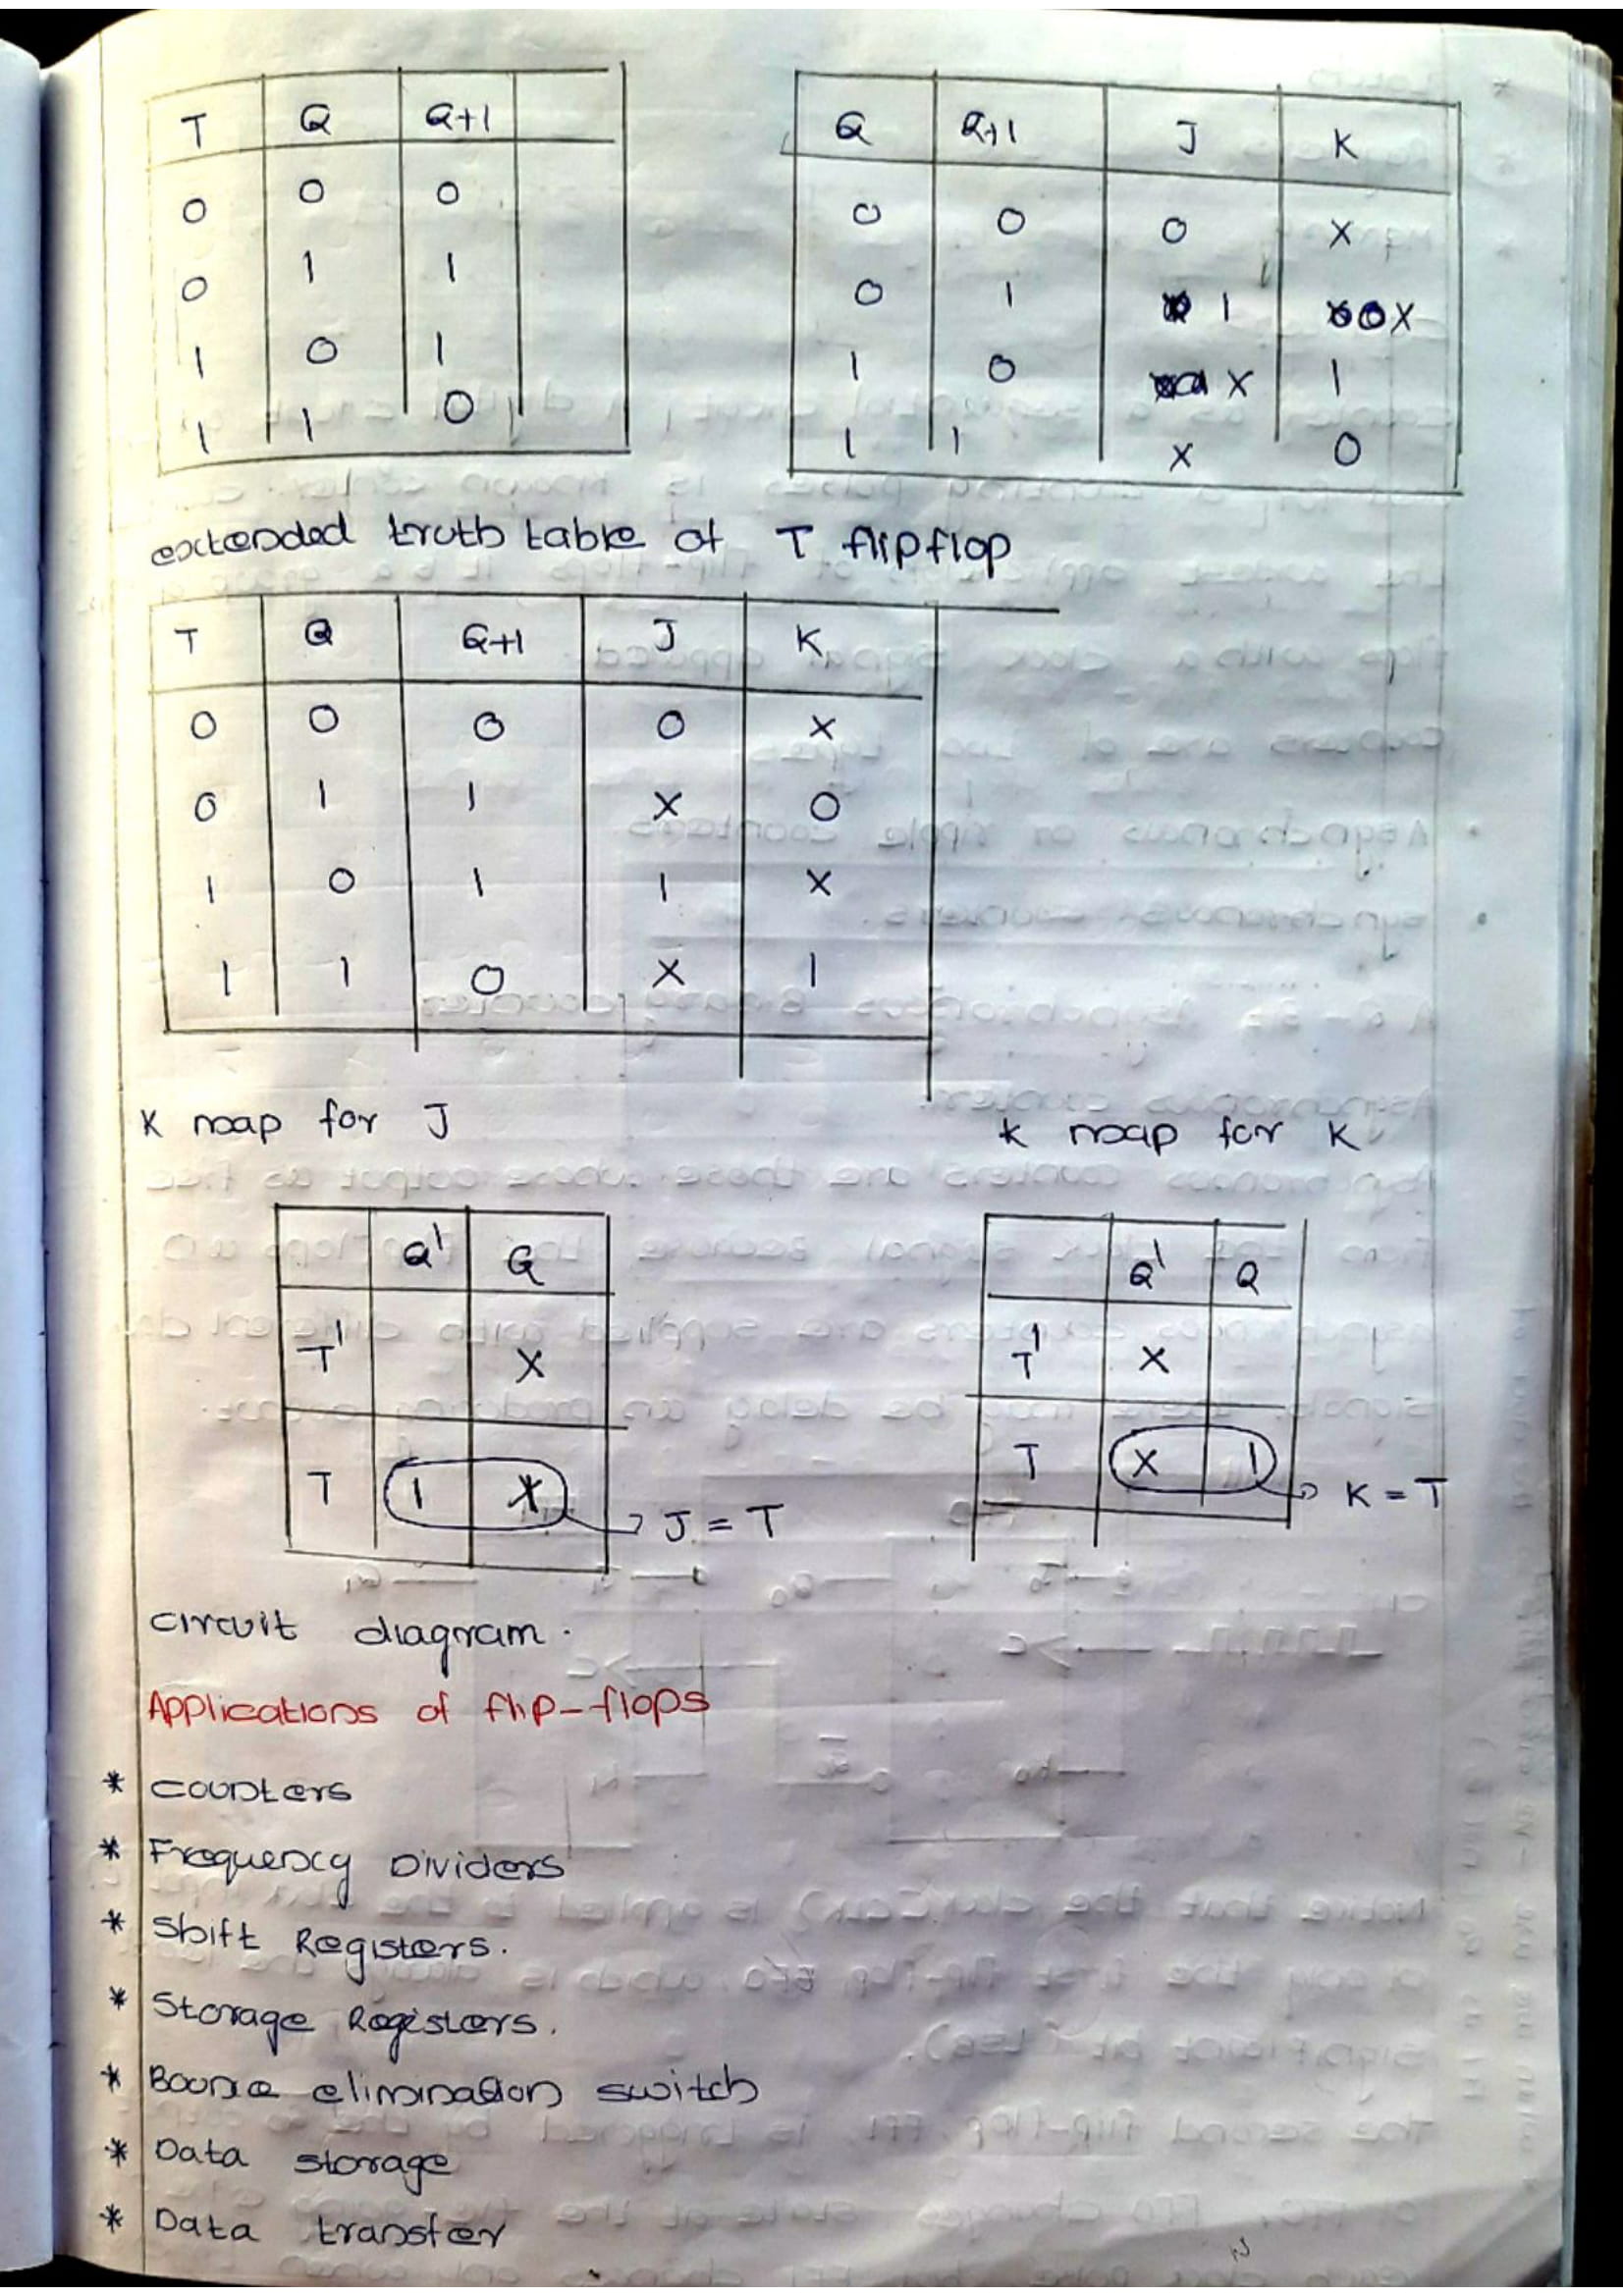 T Q Q+1
0 0 0
0 1 1
1 0 1
1 1 0
Q Q+1 J K
0 0 0 X
0 1 1 X
1 0 X 1
1 1 X 0
extended truth table of T flipflop
T Q Q+1 J K
0 0 0 0 X
0 1 1 X 0
1 0 1 1 X
1 1 0 X 1
K map for J
Q' Q
T' X
T 1 X
J = T
K map for K
Q' Q
T' X
T X 1
K = T
circuit diagram.
Applications of flip-flops
* counters
* Frequency Dividers
* Shift Registers.
* Storage Registers.
* Bounce elimination switch
* Data storage
* Data transfer